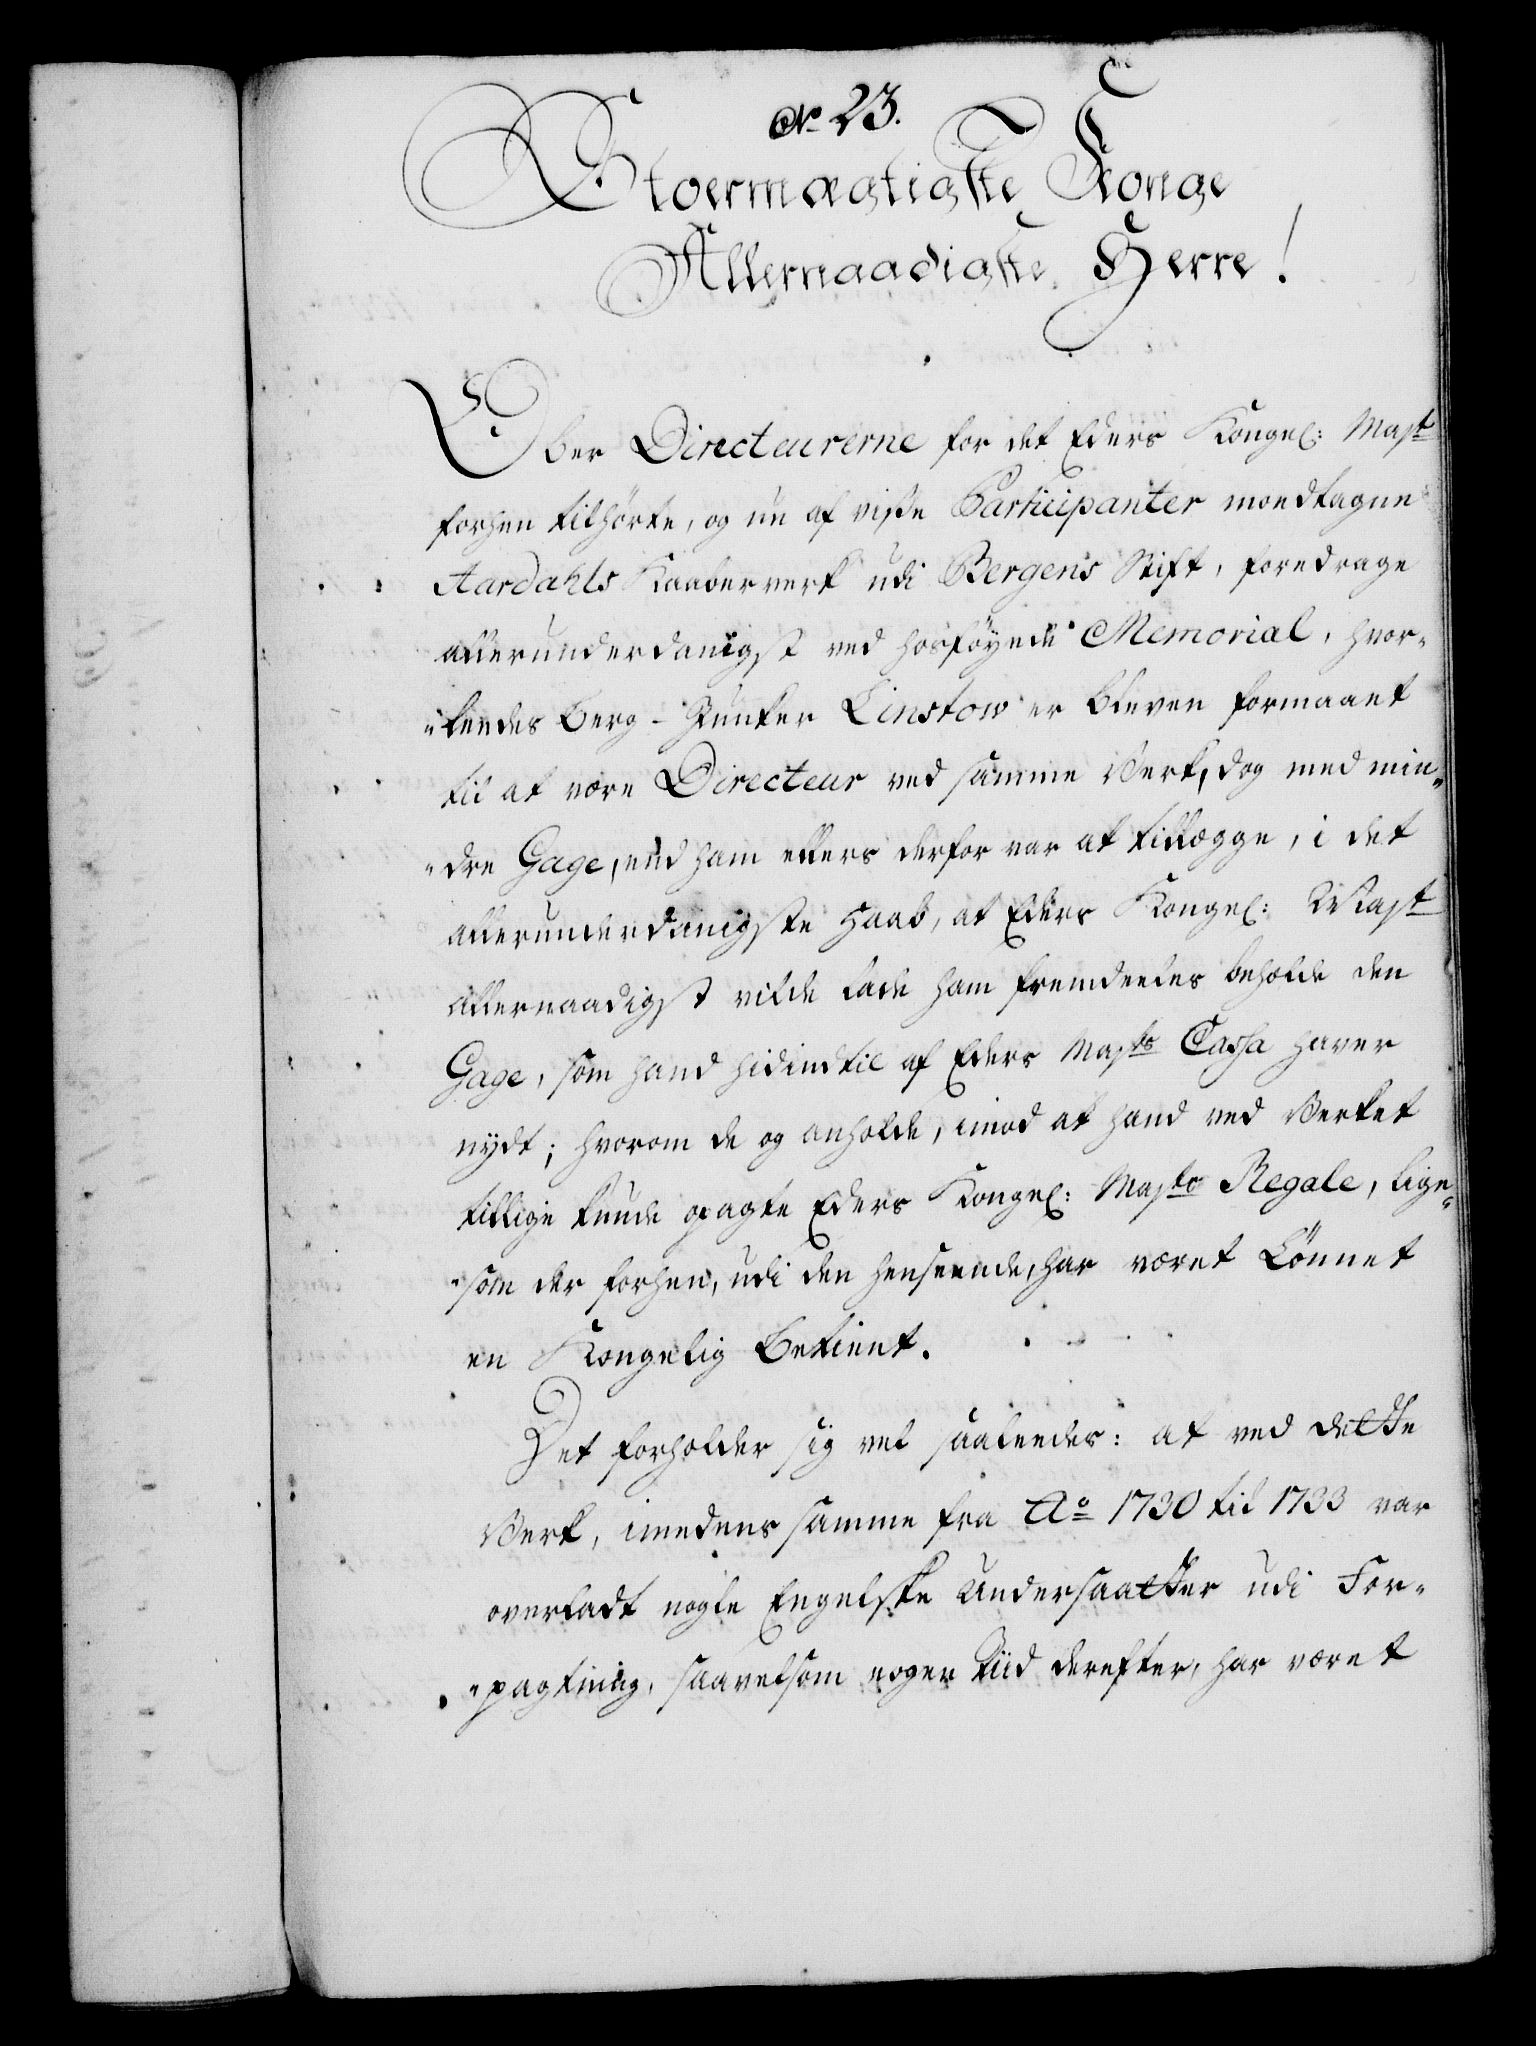 No 23.
Stoermægtigste Konge
Allernaadigste Herre!
Ober Directeurerne for det Eders Kongel: Mayt
forhen tilhörte, og nu af visse Participanter modtagne
Aardahls Kaaberverk udi Bergens Stift, foredrage
allerunderdanigst ved hosföyede Memorial, hvor-
"ledes Berg-Junker Linstow er bleven formaaet
til at være Directeur ved samme Verk, dog med min-
"dre Gage, end ham ellers derfor var at tillægge, i det
allerunderdanigste Haab, at Eders Kongel: Mayt
allernaadigst vilde lade ham fremdeeles beholde den
Gage, som hand hidindtil af Eders Mayts Cassa haver
nydt; hvorom de og anholde, imod at hand ved Verket
tillige kunde pagte Eders Kongel: Mayts Regale, lige-
"som der forhen, udi den henseende, har været Lönnet
en Kongelig Betient.
Det forholder sig vel saaledes: at ved dette
Verk, imedens samme fra Ao 1730 til 1733 var
overladt nogle Engelske Undersaatter udi For-
"pagtning, saavelsom nogen Tiid derefter, har været